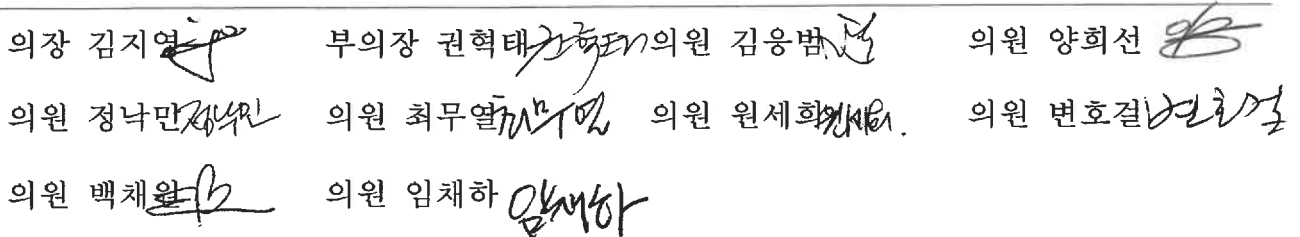 의장 김지영 부의장 권혁태 권혁태 의원 김응범 의원 양희선
의원 정낙만 정낙만 의원 최무열 최무열 의원 원세희 원세희. 의원 변호걸 변호걸
의원 백채원 의원 임채하 임채하